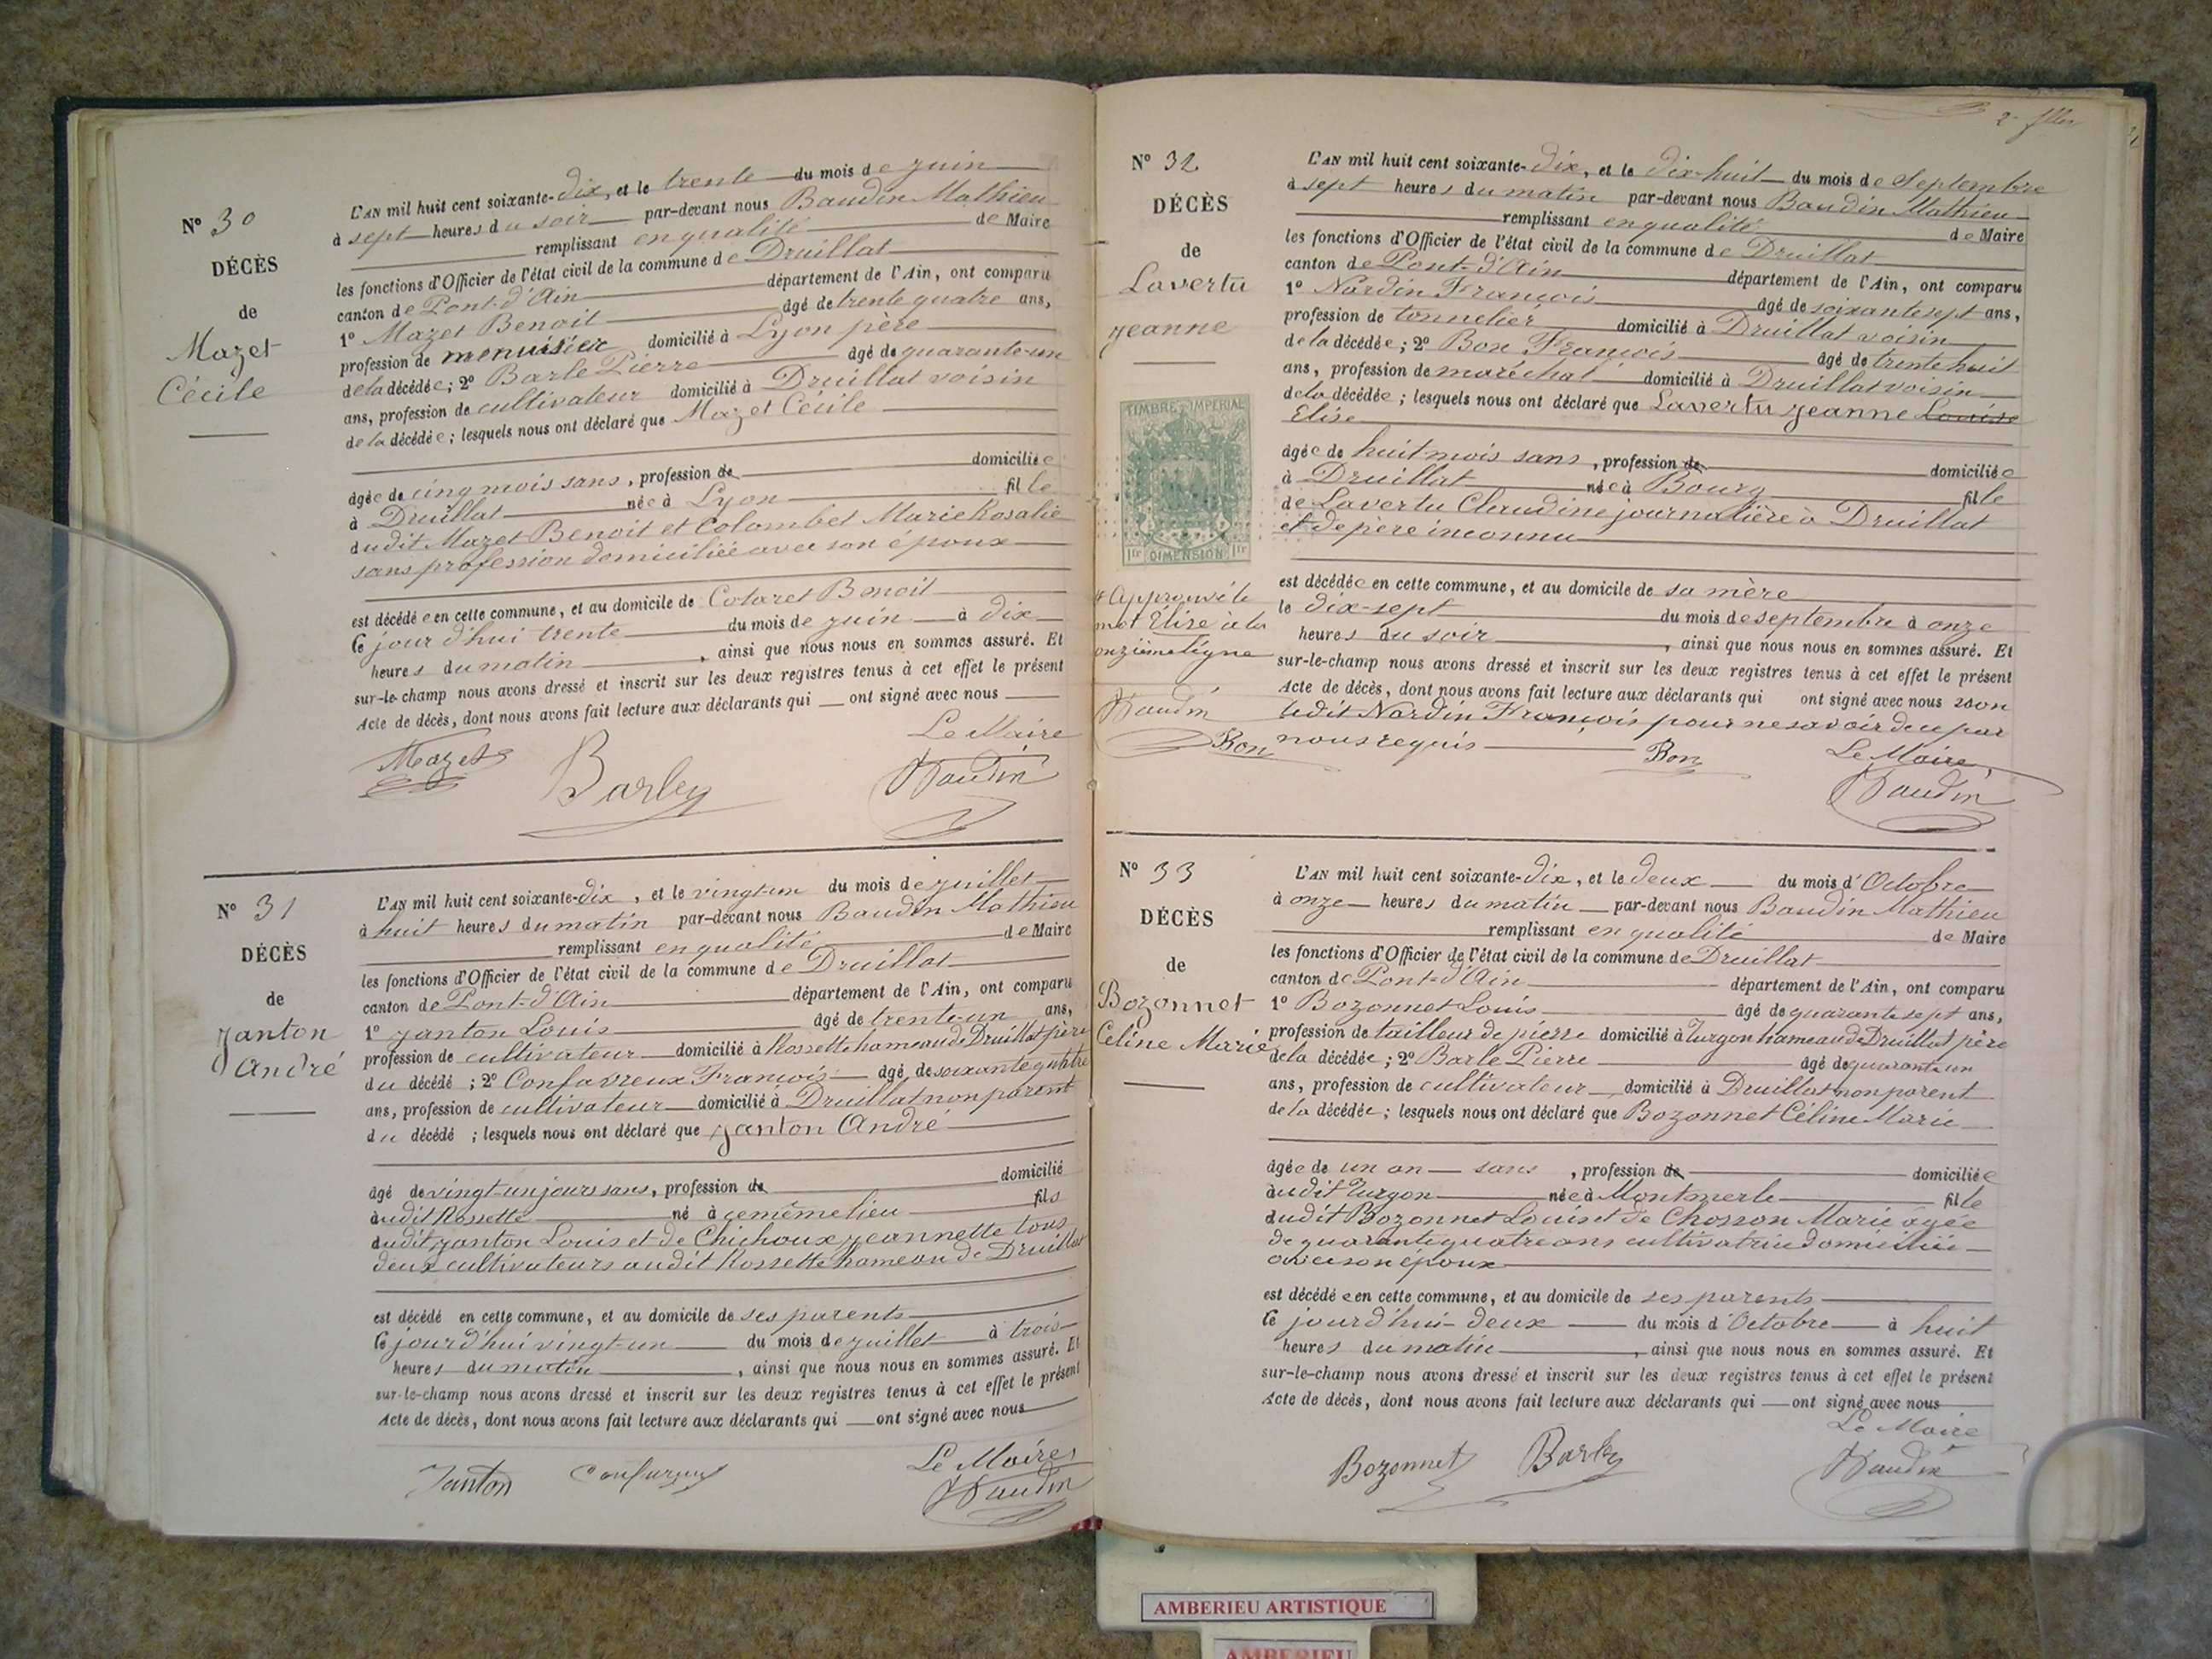 Nº 30
DÉCÈS
de
Mazet
Cécile
L'AN mil huit cent soixante-dix, et le trente du mois de juin
à sept heures du soir par-devant nous Baudin Mathieu
remplissant en qualité de Maire
les fonctions d'Officier de l'état civil de la commune de Druillat
canton de Pont-d'Ain département de l'Ain, ont comparu
1º Mazet Benoit âgé de trente quatre ans,
profession de menuisier domicilié à Lyon père
de la décédée; 2º Barle Pierre âgé de quarante-un
ans, profession de cultivateur domicilié à Druillat voisin
de la décédée; lesquels nous ont déclaré que Mazet Cécile
âgée de cinq mois sans, profession de domiciliée
à Druillat née à Lyon fille
dudit Mazet Benoit et Colombet Marie Rosalie
sans profession domiciliée avec son époux
est décédée en cette commune, et au domicile de Colaret Benoit
le jour d'hui trente du mois de juin à dix
heures du matin, ainsi que nous nous en sommes assuré. Et
sur-le-champ nous avons dressé et inscrit sur les deux registres tenus à cet effet le présent
Acte de décès, dont nous avons fait lecture aux déclarants qui ont signé avec nous
Le Maire
Mazet Barley Baudin
Nº 31
DÉCÈS
de
Janton
André
L'AN mil huit cent soixante-dix, et le vingt-un du mois de juillet
à huit heures du matin par-devant nous Baudin Mathieu
remplissant en qualité de Maire
les fonctions d'Officier de l'état civil de la commune de Druillat
canton de Pont-d'Ain département de l'Ain, ont comparu
1º Janton Louis âgé de trente-un ans,
profession de cultivateur domicilié à Rossette hameau de Druillat père
du décédé; 2º Confavreux François âgé de soixante quatre
ans, profession de cultivateur domicilié à Druillat non parent
du décédé; lesquels nous ont déclaré que Janton André
âgé de vingt-un jours sans, profession de domicilié
audit Rossette né à ce même lieu fils
dudit Janton Louis et de Chichoux Jeannette tous
deux cultivateurs audit Rossette hameau de Druillat
est décédé en cette commune, et au domicile de ses parents
le jour d'hui vingt-un du mois de juillet à trois
heures du matin, ainsi que nous nous en sommes assuré. Et
sur-le-champ nous avons dressé et inscrit sur les deux registres tenus à cet effet le présent
Acte de décès, dont nous avons fait lecture aux déclarants qui ont signé avec nous
Le Maire
Janton Baudin
Nº 32
DÉCÈS
de
Lavertu
Jeanne
TIMBRE IMPERIAL
1fr DIMENSION 1fr
Approuvé le
mot Elise à la
onzième ligne
Baudin
Bon
L'AN mil huit cent soixante-dix, et le dix-huit du mois de Septembre
à sept heures du matin par-devant nous Baudin Mathieu
remplissant en qualité de Maire
les fonctions d'Officier de l'état civil de la commune de Druillat
canton de Pont-d'Ain département de l'Ain, ont comparu
1º Nardin François âgé de soixante sept ans,
profession de tonnelier domicilié à Druillat voisin
de la décédée; 2º Bon François âgé de trente huit
ans, profession de maréchal domicilié à Druillat voisin
de la décédée; lesquels nous ont déclaré que Lavertu Jeanne Louise
Elise
âgée de huit mois sans, profession de domiciliée
à Druillat née à Bourg fille
de Lavertu Claudine journalière à Druillat
et de père inconnu
est décédée en cette commune, et au domicile de sa mère
le dix-sept du mois de septembre à onze
heures du soir, ainsi que nous nous en sommes assuré. Et
sur-le-champ nous avons dressé et inscrit sur les deux registres tenus à cet effet le présent
Acte de décès, dont nous avons fait lecture aux déclarants qui ont signé avec nous non
ledit Nardin François pour ne savoir de ce par
nous requis
Bon Le Maire
Baudin
Nº 33
DÉCÈS
de
Bozonnet
Céline Marie
L'AN mil huit cent soixante-dix, et le deux du mois d'Octobre
à onze heures du matin par-devant nous Baudin Mathieu
remplissant en qualité de Maire
les fonctions d'Officier de l'état civil de la commune de Druillat
canton de Pont-d'Ain département de l'Ain, ont comparu
1º Bozonnet Louis âgé de quarante sept ans,
profession de tailleur de pierre domicilié à Turgon hameau de Druillat père
de la décédée; 2º Barle Pierre âgé de quarante un
ans, profession de cultivateur domicilié à Druillat non parent
de la décédée; lesquels nous ont déclaré que Bozonnet Céline Marie
âgée de un an sans, profession de domiciliée
audit Turgon née à Montmerle fille
dudit Bozonnet Louis et de Chosson Marie âgée
de quarante quatre ans cultivatrice domiciliée
avec son époux
est décédée en cette commune, et au domicile de ses parents
le jourd'hui deux du mois d'Octobre à huit
heures du matin, ainsi que nous nous en sommes assuré. Et
sur-le-champ nous avons dressé et inscrit sur les deux registres tenus à cet effet le présent
Acte de décès, dont nous avons fait lecture aux déclarants qui ont signé avec nous
Le Maire
Bozonnet Barley Baudin
AMBERIEU ARTISTIQUE
AMBERIEU